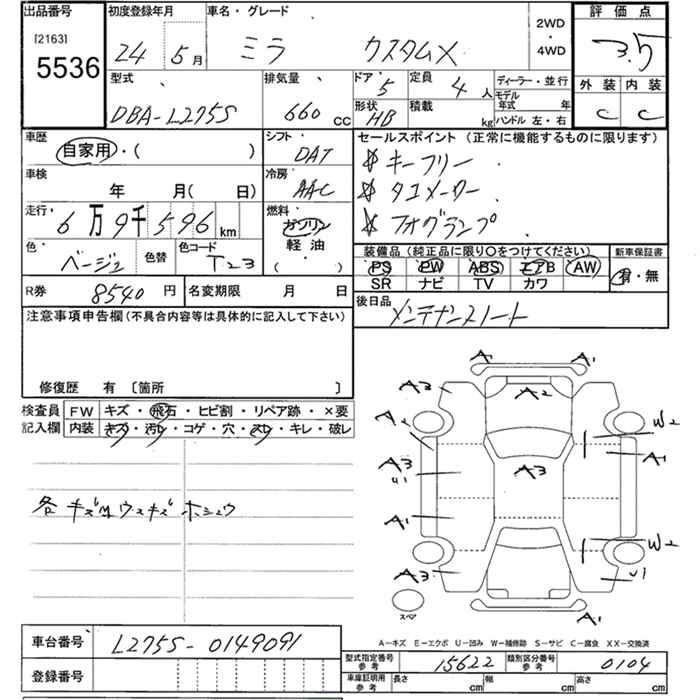 出品番号 初度登録年月 車名・グレード 2WD・4WD 評価点
[2163] 5536 24年 5月 ミラ カスタムX 3.5
型式 排気量 ドア 5 定員 4人 ディーラー・並行 外装 内装
DBA-L275S 660cc 形状 HB 積載 kg モデル年式 年 ハンドル 左・右 C C
車歴 シフト セールスポイント(正常に機能するものに限ります)
自家用・( ) DAT キーフリー
車検 年 月(日) 冷房 AAC タコメーター
走行 6万9千596km 燃料 ガソリン 軽油 ( ) フォグランプ
色 ベージュ 色替 色コード T23 装備品(純正品に限り○をつけてください) 新車保証書
PS PW ABS エアB AW 有・無
SR ナビ TV カワ
R券 8540円 名変期限 月 日 後日品 メンテナンスノート
注意事項申告欄(不具合内容等は具体的に記入して下さい)
修復歴 有 〔箇所 〕
検査員 FW キズ・飛石・ヒビ割・リペア跡・×要
記入欄 内装 キズ・汚レ・コゲ・穴・スレ・キレ・破レ
各 キズ ウスキズ ホシュウ
A A1
A3 A2
A2 W2
A3 A3 A1
U1
A1 W2
A3 U1
スペア A1
A-キズ E-エクボ U-凹み W-補修跡 S-サビ C-腐食 XX-交換済
車台番号 L275S-0149091
型式指定番号 参考 15622 類別区分番号 参考 0104
登録番号 車庫証明用 参考 長さ cm 幅 cm 高さ cm